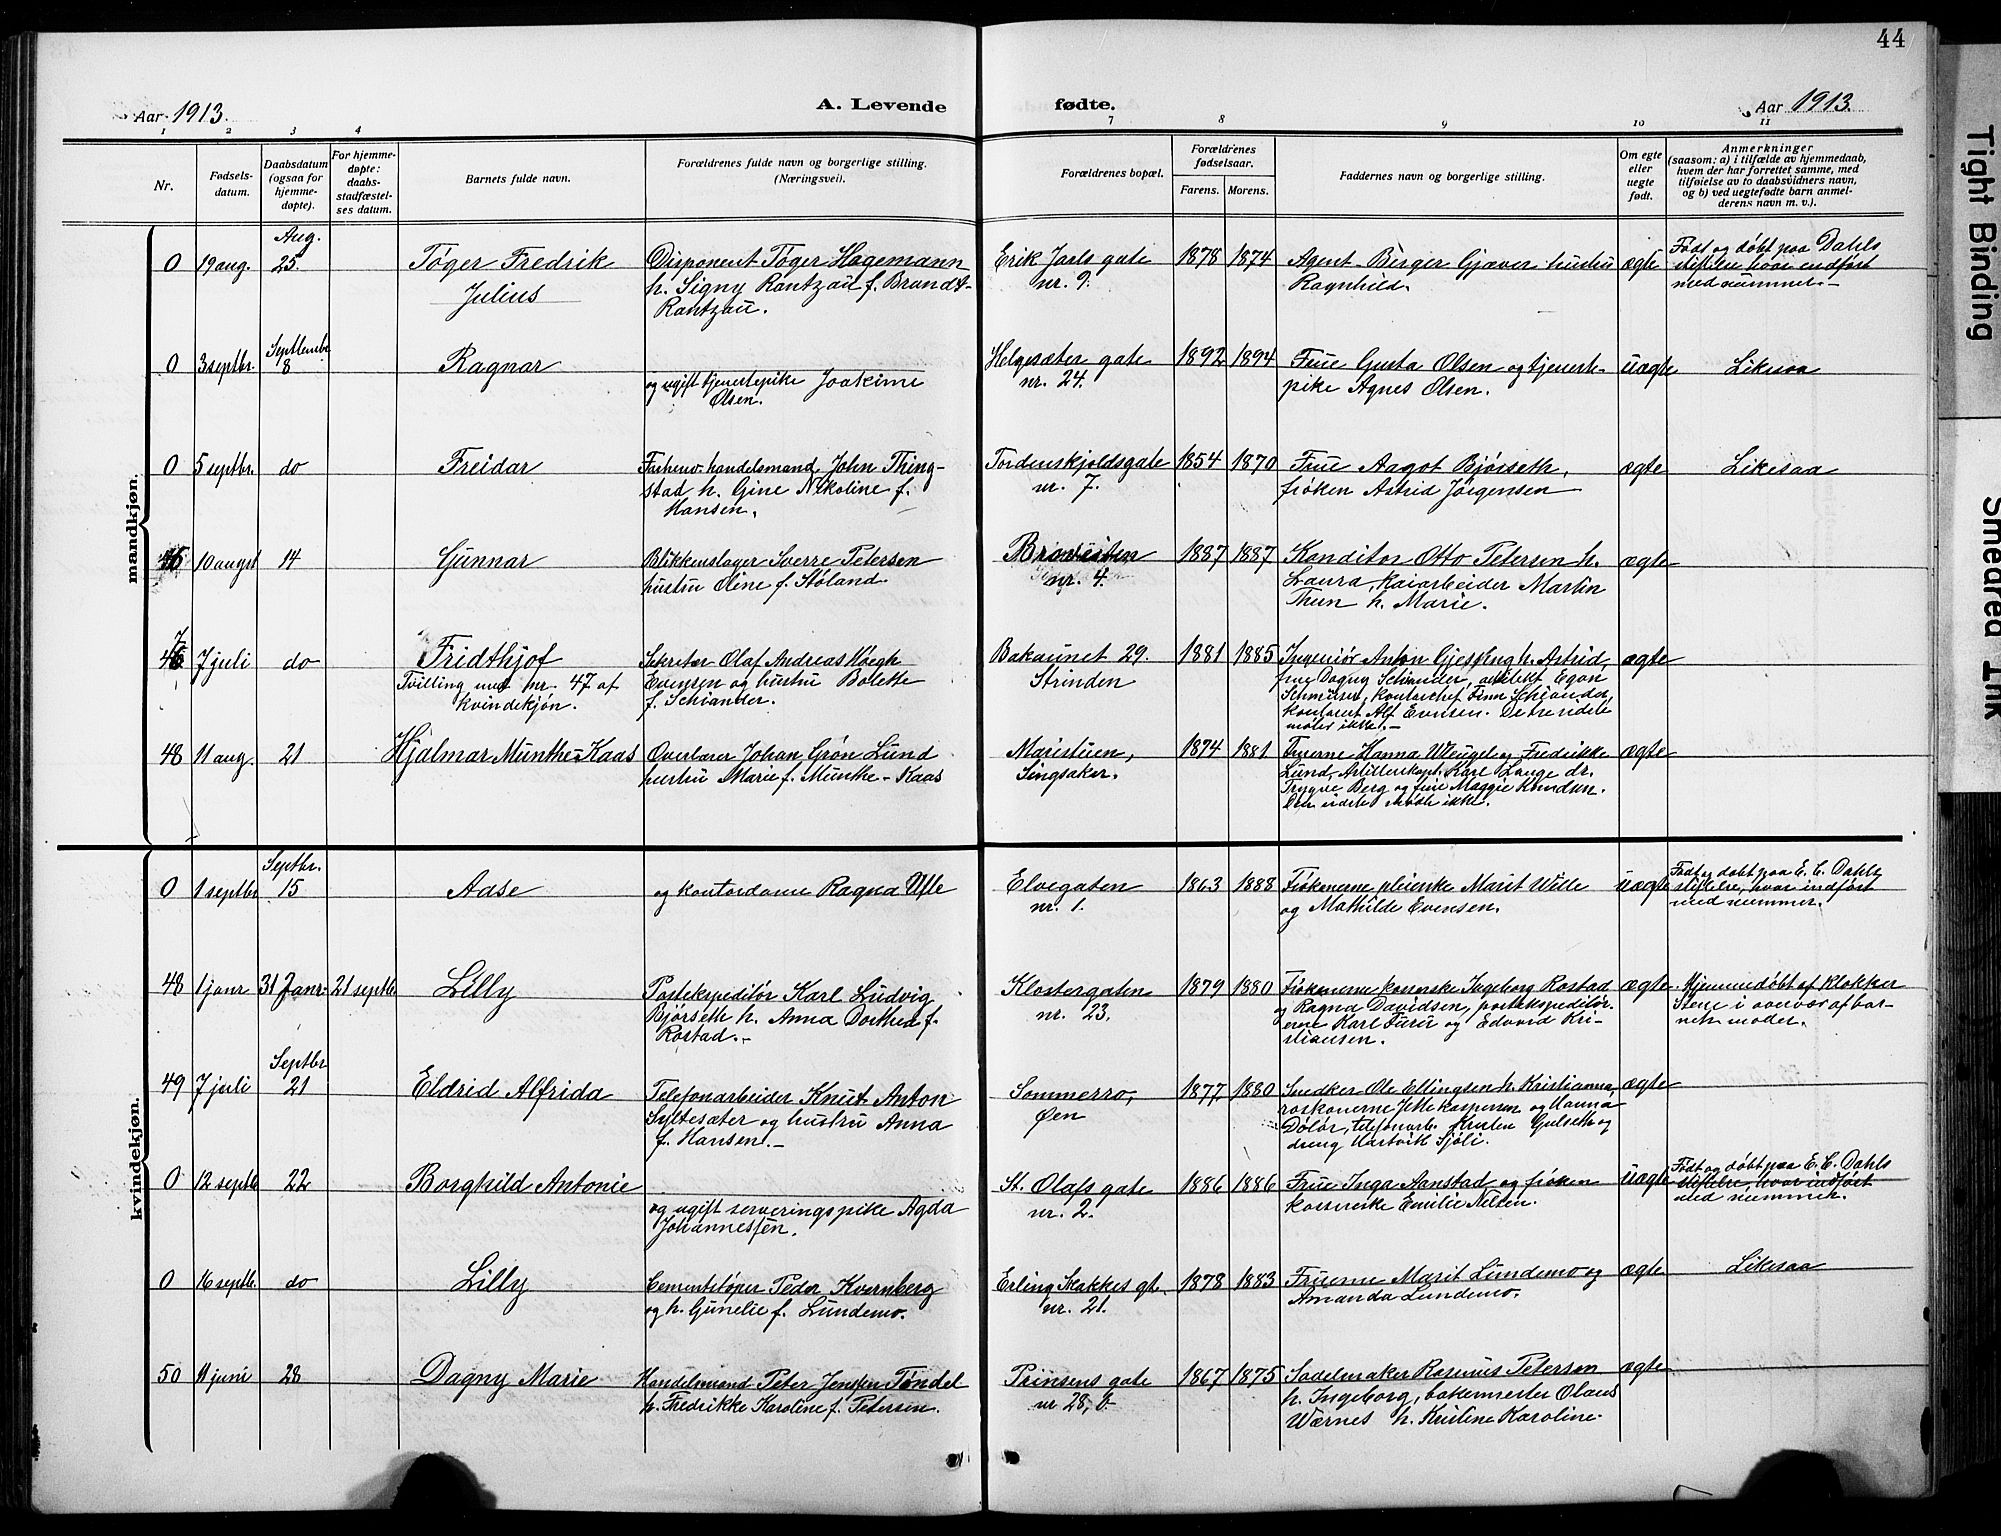 44
Aar 1913.
A. Levende
fødte.
Aar 1913.
1 2 3 4 7 8 9 10 11
Nr.
Fødsels-
datum.
Daabsdatum
(ogsaa for
hjemme-
døpte).
For hjemme-
døpte:
daabs-
stadfæstel-
ses datum.
Barnets fulde navn.
Forældrenes fulde navn og borgerlige stilling.
(Næringsvei).
Forældrenes bopæl.
Forældrenes
fødselsaar.
Farens. Morens.
Faddernes navn og borgerlige stilling.
Om egte
eller
uegte
født.
Anmerkninger
(saasom: a) i tilfælde av hjemmedaab,
hvem der har forrettet samme, med
tilføielse av to daabsvidners navn,
og b) ved uegtefødte barn anmel-
derens navn m. v.).
mandkjøn.
0 19 aug. Aug. 25. Tøger Fredrik
Julius
Disponent Tøger Hagemann
h. Signy Rantzau f. Brandt-
Rantzau.
Erik Jarls gate
nr. 9.
1878 1874
Agent Berger Gjæver hustru
Ragnhild.
ægte
Født og døbt paa Dahls
stiftelse, hvor indført
med nummer.
0 3 septbr. Septembr 8 Ragnar
og ugift tjenestepike Joakime
Olsen.
Helgesæter gate
nr. 24.
1892 1894
Frue Gusta Olsen og tjeneste-
pike Agnes Olsen.
uægte
Likesaa
0 5 septbr. do Freidar
handelsmand John Thing-
stad h. Gine Nikoline f.
Hansen.
Tordenskjoldsgate
nr. 7.
1854 1870
Frue Aagot Bjørseth,
frøken Astrid Jørgensen
ægte
Likesaa
46 10 augst 14 Gunnar
Blikkenslager Sverre Petersen
hustru Oline f. Støland.
nr. 4.
1887 1887
Konditor Otto Petersen h.
Laura, kaiarbeider Martin
Thun h. Marie.
ægte
47 7 juli do Fridthjof
Tvilling med nr. 47 af
kvindekjøn.
Sekretær Olaf Andreas Høegh
Evensen og hustru Bolette
f. Schiander.
Bakaunet 29.
Strinden
1881 1885
Ingeniør Anton Gjessing h. Astrid,
frue Dagny Schiander, arkitekt Egon
kontorchef Finn Schiander,
kontorist Alf Evensen. De tre sidste
møter ikke.
ægte
48 11 aug. 21 Hjalmar Munthe-Kaas
Overlærer Johan Grøn Lund
hustru Marie f. Munthe-Kaas
Maristuen,
Singsaker.
1874 1881
Fruerne Hanna Wengel og Fredrikke
Lund, Artillerikapt. Karl Lange dr.
Trygve Berg og frue Maggie Knudsen.
Den sidste møtte ikke.
ægte
kvindekjøn.
0 1 septbr Septbr. 15 Aase
og kontordame Ragna Ufle
Elvegaten
nr. 1.
1863 1888
Frøknerne, pleierske Marit Wille
og Mathilde Evensen.
uægte
Født og døbt paa E. C. Dahls
stiftelse, hvor indført
med nummer.
48 1 janr 31 Janr. 21 septbr. Lilly
Postekspeditør Karl Ludvig
Bjørseth h. Anna Dorthea f.
Rostad.
Klostergaten
nr. 23.
1879 1880
Frøknerne kassererske Ingeborg Rostad
og Ragna Davidsen, postekspeditør-
erne Karl Furu og Edvard Kri-
stiansen.
ægte
Hjemmedøbt af klokker
Stene i overvær af bar-
nets moder.
49 7 juli Septbr 21 Eldrid Alfrida
Telefonarbeider Knut Anton
Syltesæter og hustru Anna
f. Hansen.
Sommerro,
Øen
1877 1880
Snedker Ole Ellingsen h. Kristianna,
frøknerne Jette Kaspersen og Hanna
Dølør, telefonarb. Kristen Gulseth og
dreng Hartvik Sjøli.
ægte
0 12 septbr 22 Borghild Antonie
og ugift serveringspike Agda
Johannessen.
St. Olafs gate
nr. 2.
1886 1886
Frue Inga Aanstad og frøken
kassererske Emilie Nilsen.
uægte
Født og døbt paa E. C. Dahls
stiftelse, hvor indført
med nummer.
0 16 septbr. do Lilly
Cementstøper Peder Kvernberg
og h. Gunelie f. Lundemo.
Erling Skakkes gt.
nr. 21.
1878 1883
Fruerne Marit Lundemo og
Amanda Lundemo.
ægte
Likesaa
50 11 juni 28 Dagny Marie
Handelsmand Peter Jensen Tøndel
h. Fredrikke Karoline f. Petersen.
Prinsens gate
nr 28, b.
1867 1875
Sadelmaker Rasmus Petersen
h. Ingeborg, bakermester Olaus
Wærnes h. Kristine Karoline.
ægte
Tight Binding
Smeared Ink